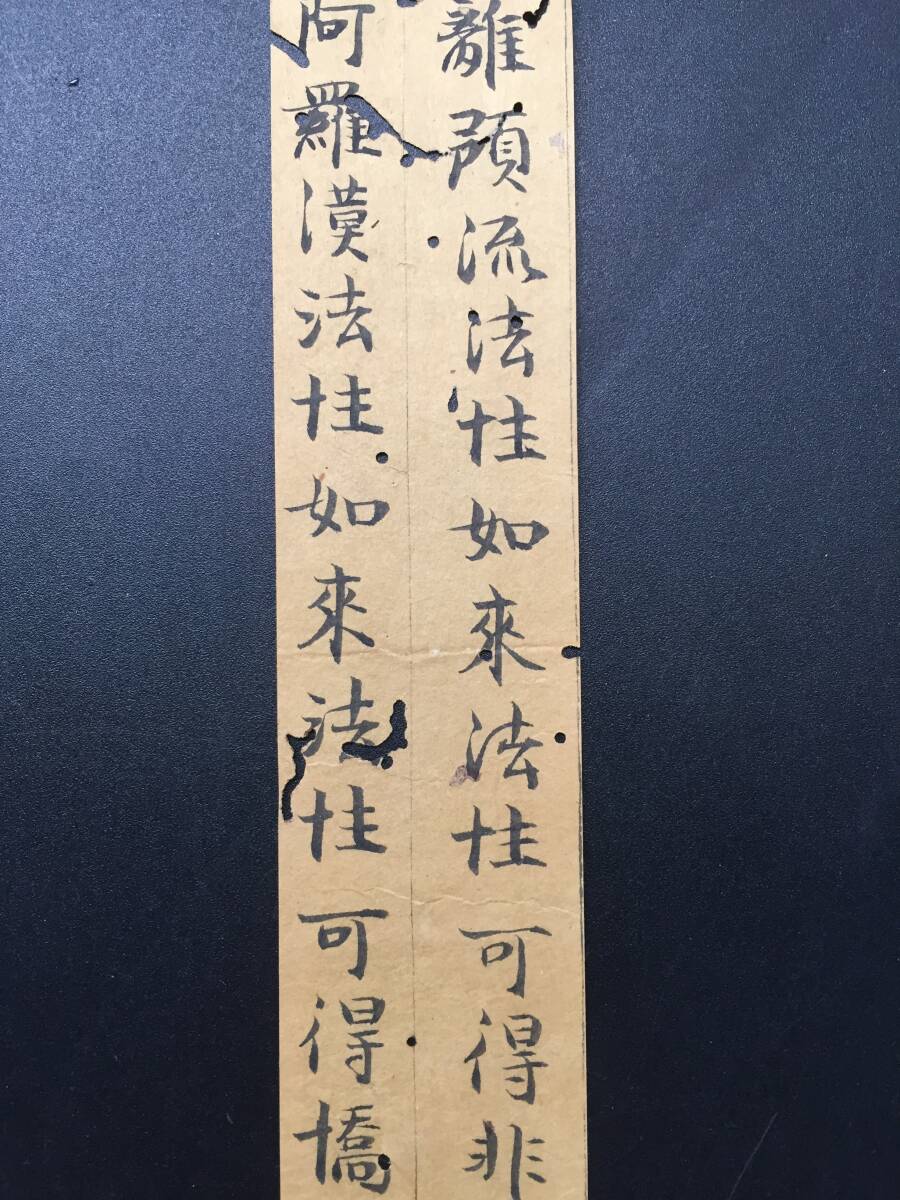 離預流法性如來法性可得非
阿羅漢法性如來法性可得憍